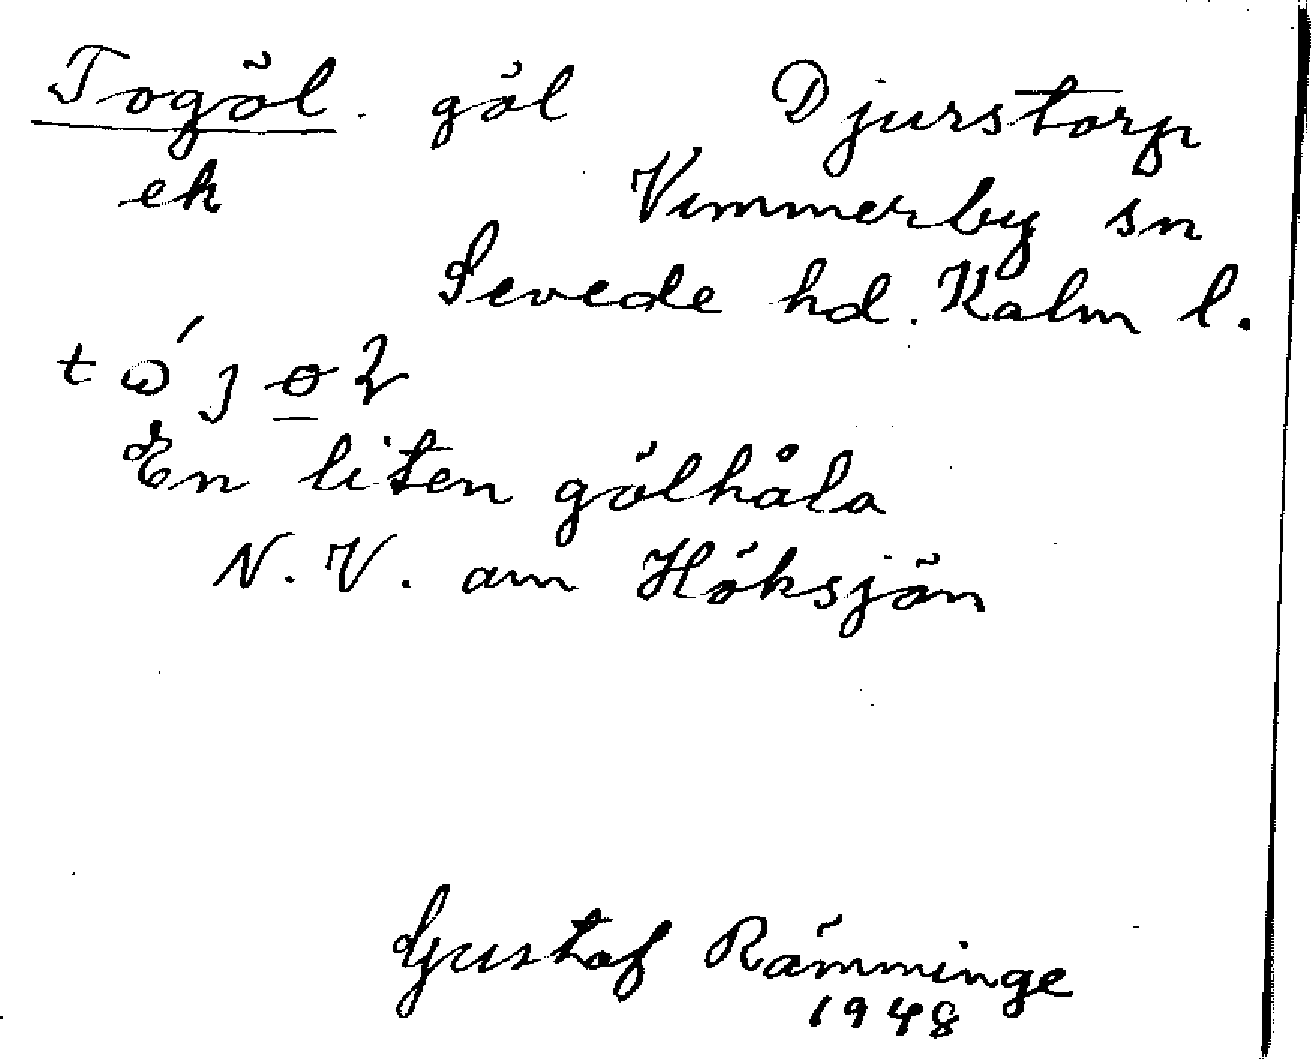 Togöl. göl Djurstorp
ek Vimmerby sn
Sevede hd. Kalm l.
En liten gölhåla
N.V. om Höksjön
Gustaf Rämminge
1948